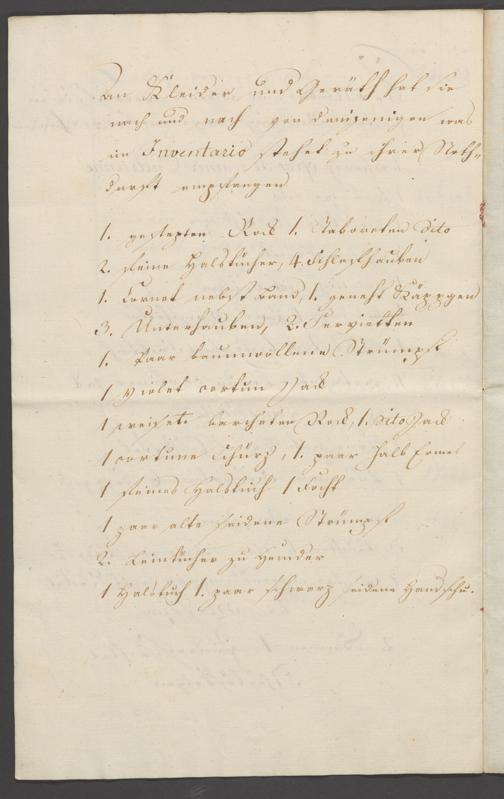 An Kleider und Geräth hat sie
nach und nach von demjenigen was
im Inventario stehet zu ihrer Noth-
durft empfangen
1. gestepten Rock 1. Dito
2. feine Halstücher, 4. Schlafhauben
1. Cornet nebst Band, 1. geneht Käppgen
3. Unterhauben, 2. Servietten
1. Paar baumwollene Strümpf
1 violet cortun Jack
1 weisen barcheten Rock, 1. dito Jack
1 cortune Schürz, 1. paar halb Ermel
1 feines Halstuch 1
1 paar alte seidene Strümpf
2. Leintücher zu Hemder
1 Halstuch 1. paar schwarz seidene Handschu.